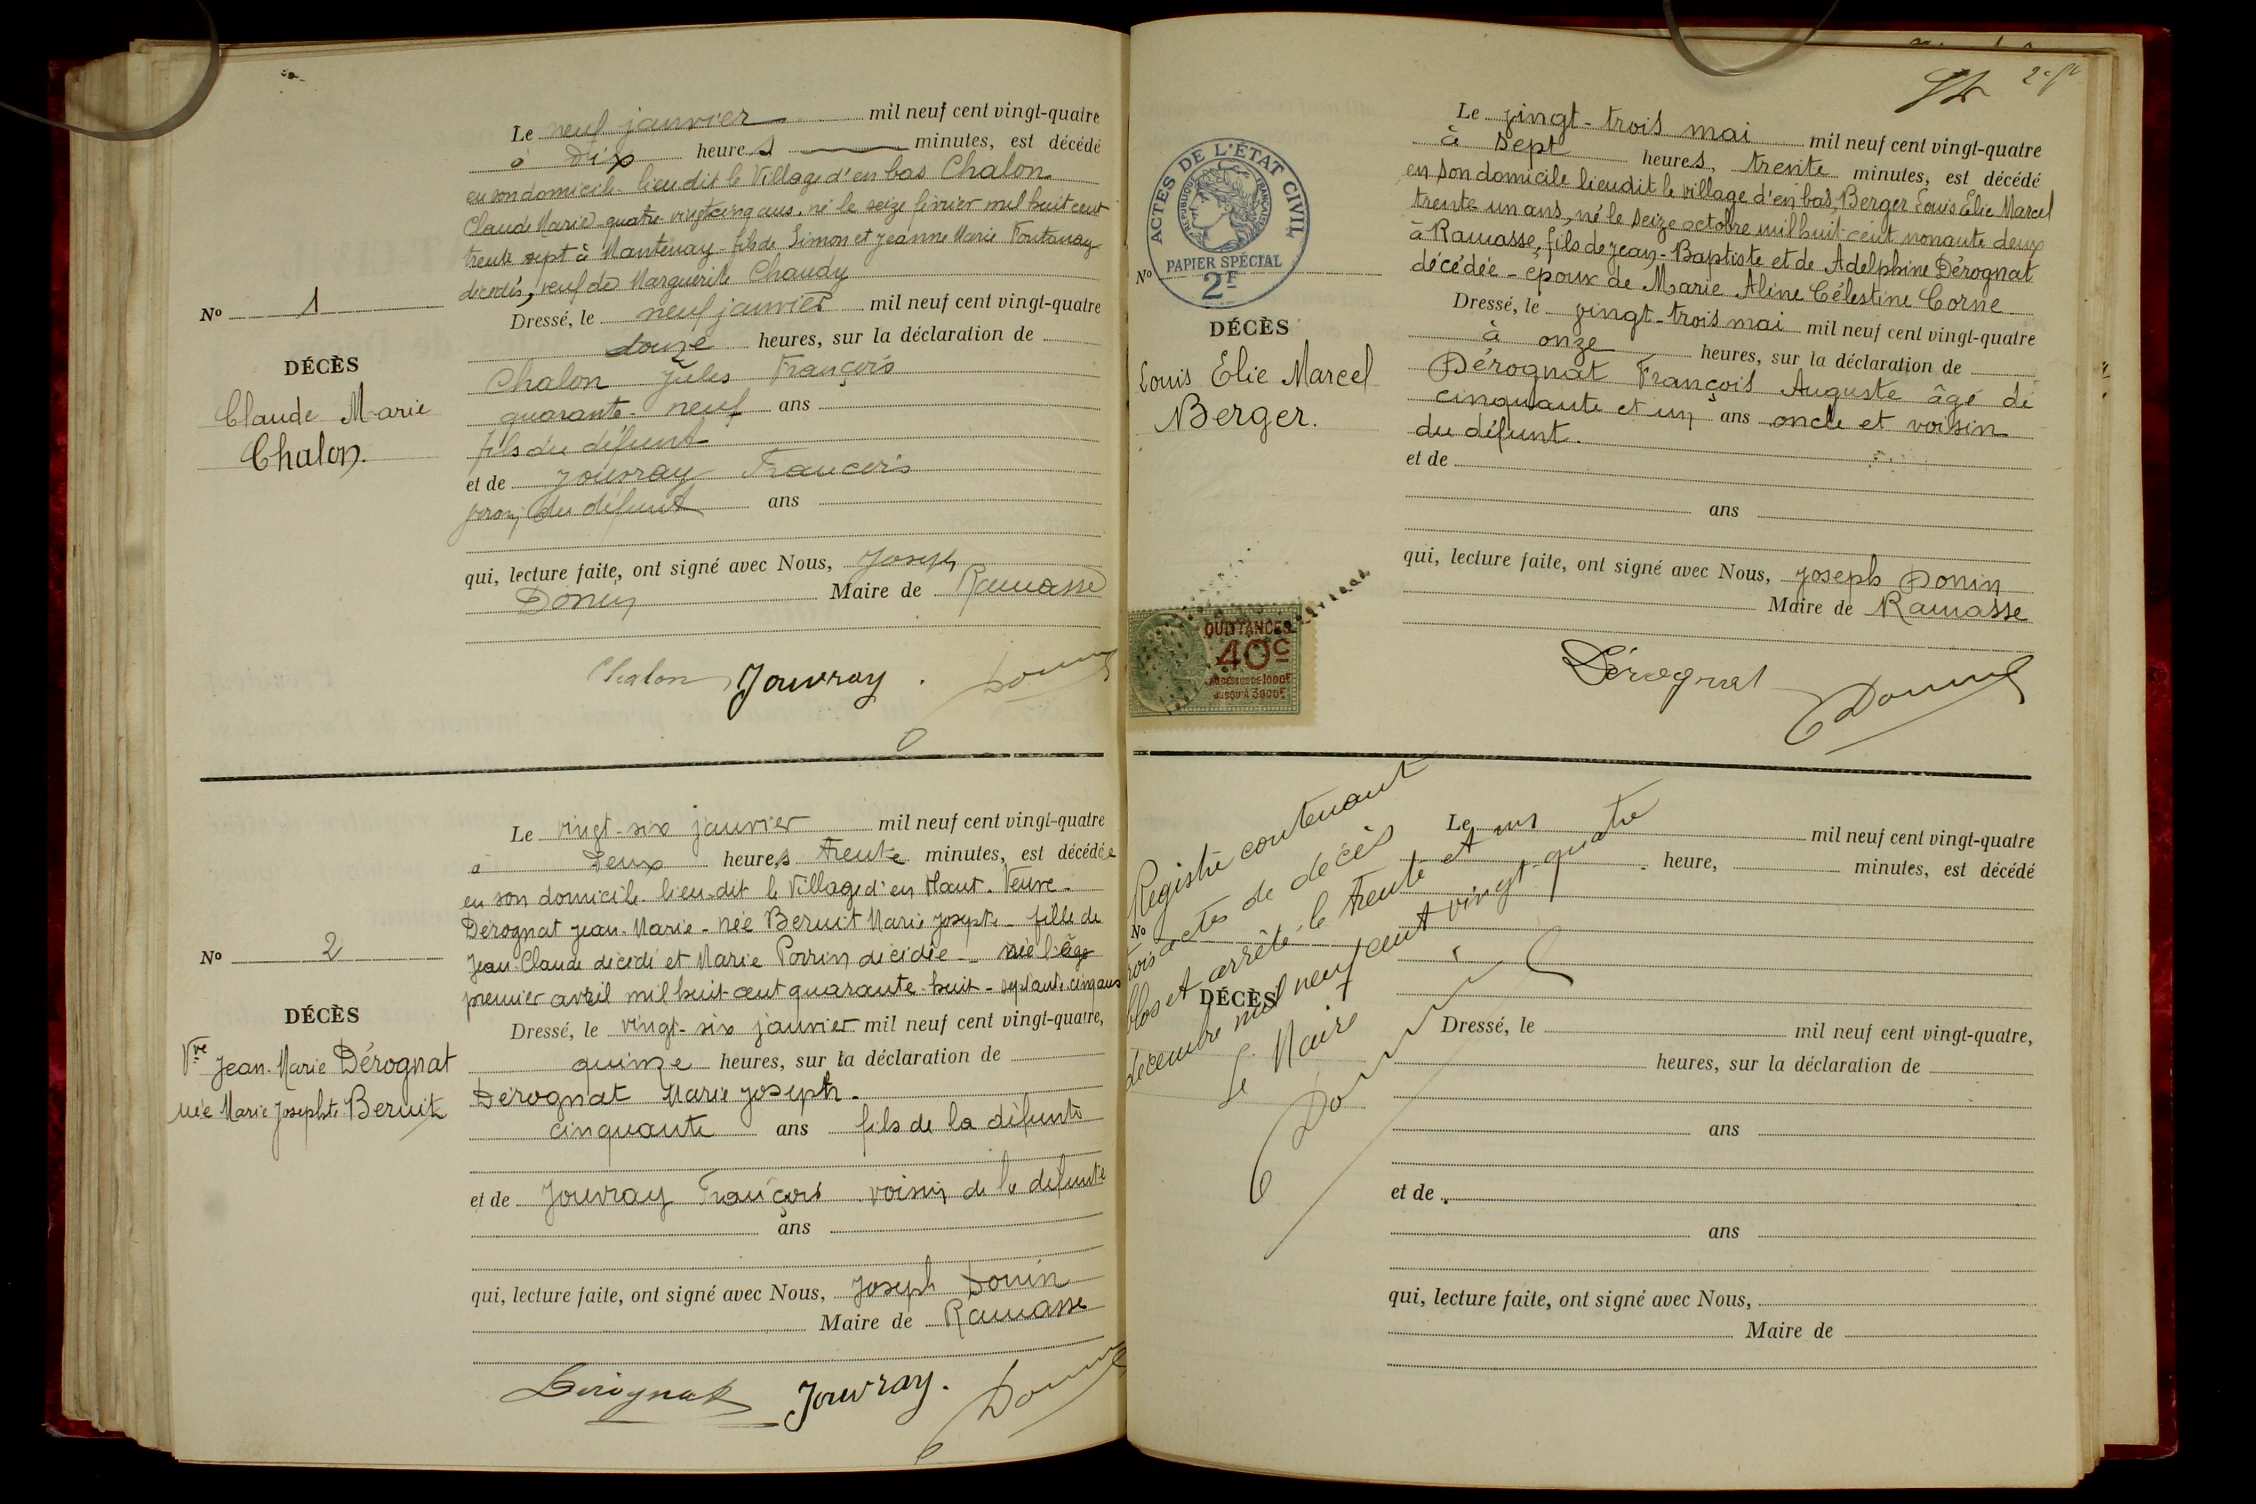 Le neuf janvier mil neuf cent vingt-quatre
à Dix heures minutes, est décédé
en son domicile lieu dit le Village d'en bas Chalon
Claude Marie quatre-vingt cinq ans, né le seize février mil huit cent
trente sept à Mantenay fils de Simon et Jeanne Marie Fontanay
décédés, veuf de Marguerite Chaudy
Nº 1
Dressé, le neuf janvier mil neuf cent vingt-quatre
douze heures, sur la déclaration de
DÉCÈS
Claude Marie
Chalon.
Chalon Jules François
quarante-neuf ans
fils du défunt
et de Jouvray François
voisin du défunt ans
qui, lecture faite, ont signé avec Nous, Joseph
Donin Maire de Ramasse
Chalon Jouvray. Donin
Le vingt-six janvier mil neuf cent vingt-quatre
à Deux heures trente minutes, est décédée
en son domicile lieu-dit le Village d'en Haut. Veuve
Dérognat Jean-Marie - née Beruit Marie Josephte fille de
Jean-Claude décédé et Marie Poirin décédée - née l'âge
premier avril mil huit cent quarante-huit - septante cinq ans
Nº 2
DÉCÈS
Vve Jean-Marie Dérognat
née Marie Josephte Beruit
Dressé, le vingt-six janvier mil neuf cent vingt-quatre,
quinze heures, sur la déclaration de
Dérognat Marie Joseph.
cinquante ans fils de la défunte
et de Jouvray François voisin de la défunte
ans
qui, lecture faite, ont signé avec Nous, Joseph Donin
Maire de Ramasse
Dérognat Jouvray. Donin
Le vingt-trois mai mil neuf cent vingt-quatre
à sept heures, trente minutes, est décédé
en son domicile lieudit le village d'en bas, Berger Louis Elie Marcel
trente un ans, né le seize octobre mil huit-cent nonante deux
à Ramasse, fils de Jean-Baptiste et de Adelphine Dérognat
décédée - époux de Marie Aline Célestine Corne
ACTES DE L'ÉTAT CIVIL
RÉPUBLIQUE FRANÇAISE
PAPIER SPÉCIAL
2F
Nº
DÉCÈS
Louis Elie Marcel
Berger.
Dressé, le vingt-trois mai mil neuf cent vingt-quatre
à onze heures, sur la déclaration de
Dérognat François Auguste âgé de
cinquante et un ans oncle et voisin
du défunt.
et de
ans
qui, lecture faite, ont signé avec Nous, Joseph Donin
Maire de Ramasse
QUITTANCES
40c
AU DESSUS DE 1000F
JUSQU'À 3000F
Dérognat Donin
Registre contenant
trois actes de décès
clos et arrêté le trente et un
décembre mil neuf cent vingt-quatre
Le Maire
Donin
Le mil neuf cent vingt-quatre
heure, minutes, est décédé
Nº
DÉCÈS
Dressé, le mil neuf cent vingt-quatre,
heures, sur la déclaration de
ans
et de
ans
qui, lecture faite, ont signé avec Nous,
Maire de